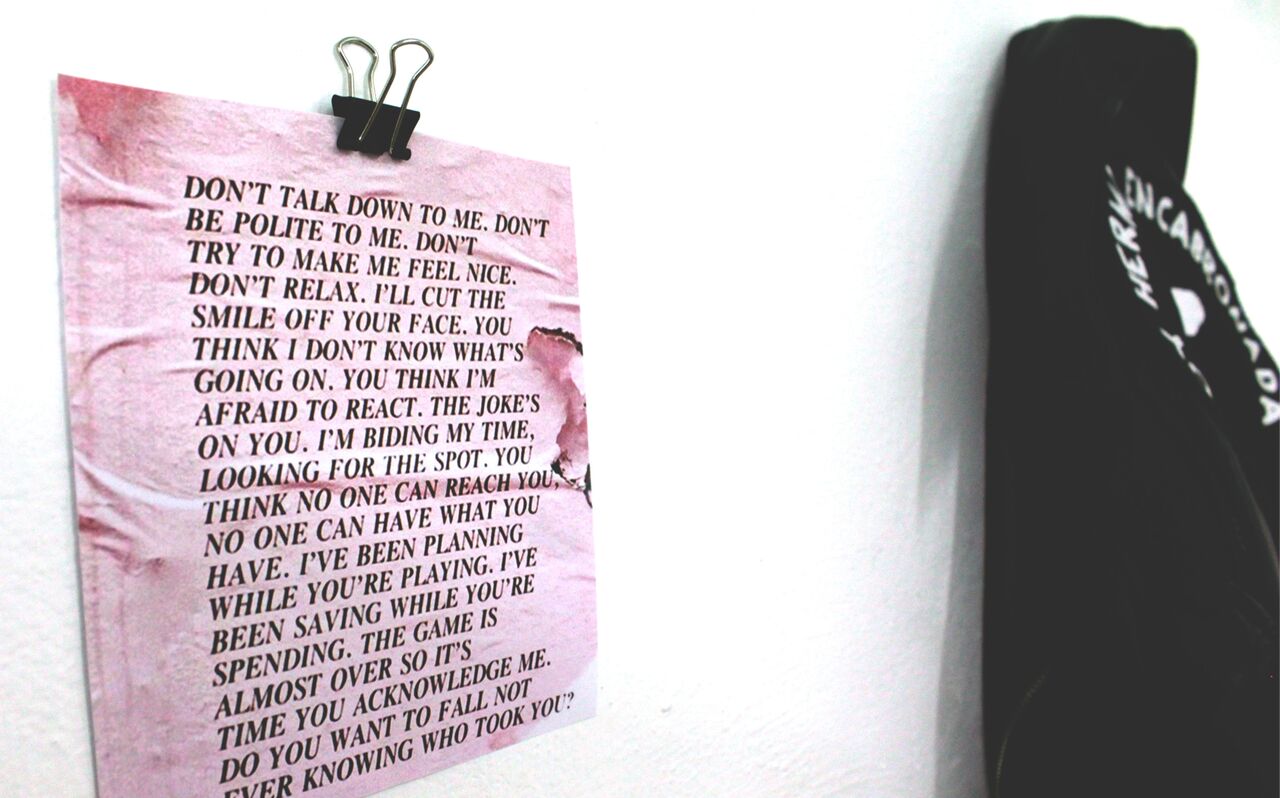 DON'T TALK DOWN TO ME. DON'T
BE POLITE TO ME. DON'T
TRY TO MAKE ME FEEL NICE.
DON'T RELAX. I'LL CUT THE
SMILE OFF YOUR FACE. YOU
THINK I DON'T KNOW WHAT'S
GOING ON. YOU THINK I'M
AFRAID TO REACT. THE JOKE'S
ON YOU. I'M BIDING MY TIME,
LOOKING FOR THE SPOT. YOU
THINK NO ONE CAN REACH YOU,
NO ONE CAN HAVE WHAT YOU
HAVE. I'VE BEEN PLANNING
WHILE YOU'RE PLAYING. I'VE
BEEN SAVING WHILE YOU'RE
SPENDING. THE GAME IS
ALMOST OVER SO IT'S
TIME YOU ACKNOWLEDGE ME.
DO YOU WANT TO FALL NOT
EVER KNOWING WHO TOOK YOU?
ENCABRONADA